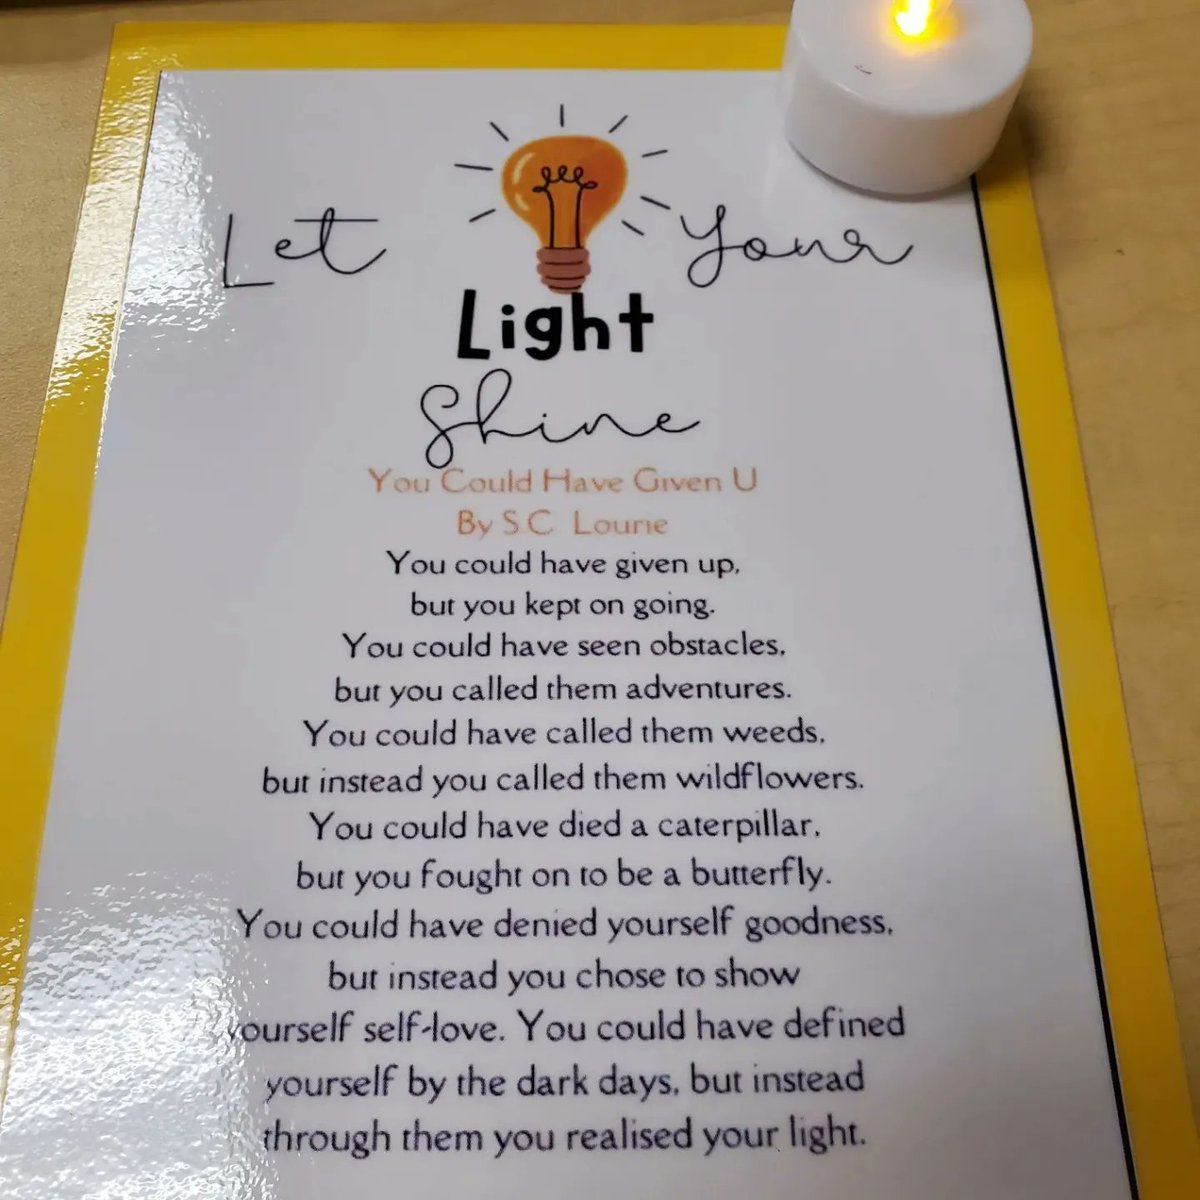 Let Your
Light
Shine
You Could Have Given U
By S.C. Lourie
You could have given up,
but you kept on going.
You could have seen obstacles,
but you called them adventures.
You could have called them weeds,
but instead you called them wildflowers.
You could have died a caterpillar,
but you fought on to be a butterfly.
You could have denied yourself goodness,
but instead you chose to show
yourself self-love. You could have defined
yourself by the dark days, but instead
through them you realised your light.